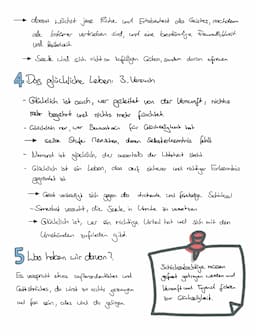 → daraus wächst jene Ruhe und Erhabenheit des Geistes, nachdem
alle Irrtümer vertrieben sind, und eine beständige Freundlichkeit
und Heiterkeit
→ Seele wird sich nicht an zufälligen Gütern, sondern daran erfreuen
4 Das glückliche Leben: 3. Versuch
- Glücklich ist auch, wer geleitet von der Vernunft, nichts
mehr begehrt und nichts mehr fürchtet
- Glücklich nur, wer Bewusstsein für Glückseligkeit hat
→ Stufe Menschen, denen Selbsterkenntnis fehlt
- Niemand ist glücklich, der ausserhalb der Wahrheit steht
- Glücklich ist ein Leben, das auf sicherer und richtiger Erkenntnis
gegründet ist
→ Geist verteidigt sich gegen das drohende und feindselige Schicksal
- versucht, die Seele in Unruhe zu versetzen
→ Glücklich ist, wer ein richtiges Urteil hat und sich mit den
Umständen zufrieden gibt
5 Was haben wir davon?
Es verspricht etwas Außerordentliches und
Göttliches, du wirst zu nichts gezwungen
und frei sein, alles wird dir gelingen
Schicksalsschläge müssen
gefasst getragen werden und
Vernunft und Tugend führen
zur Glückseligkeit.